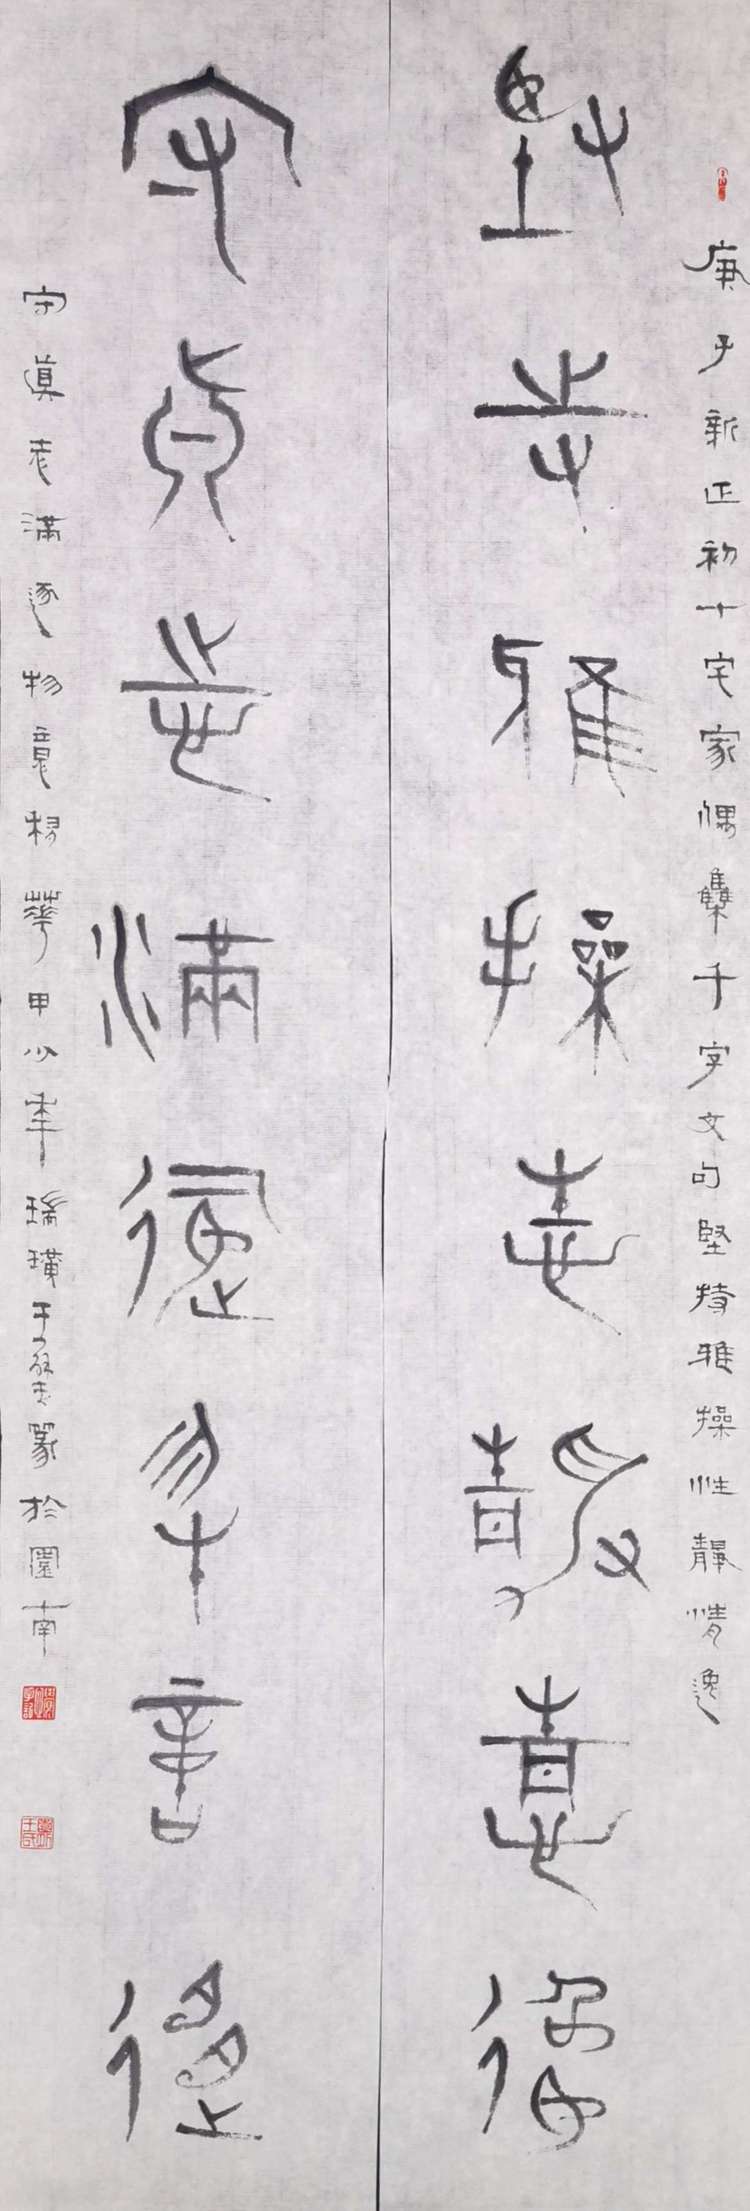 庚子新正初十宅家偶集千字文句堅持雅操性靜情逸
堅持雅操性靜情逸
守真志滿逐物意移
守真志滿逐物意移華甲少年瑞璜于篆於園南